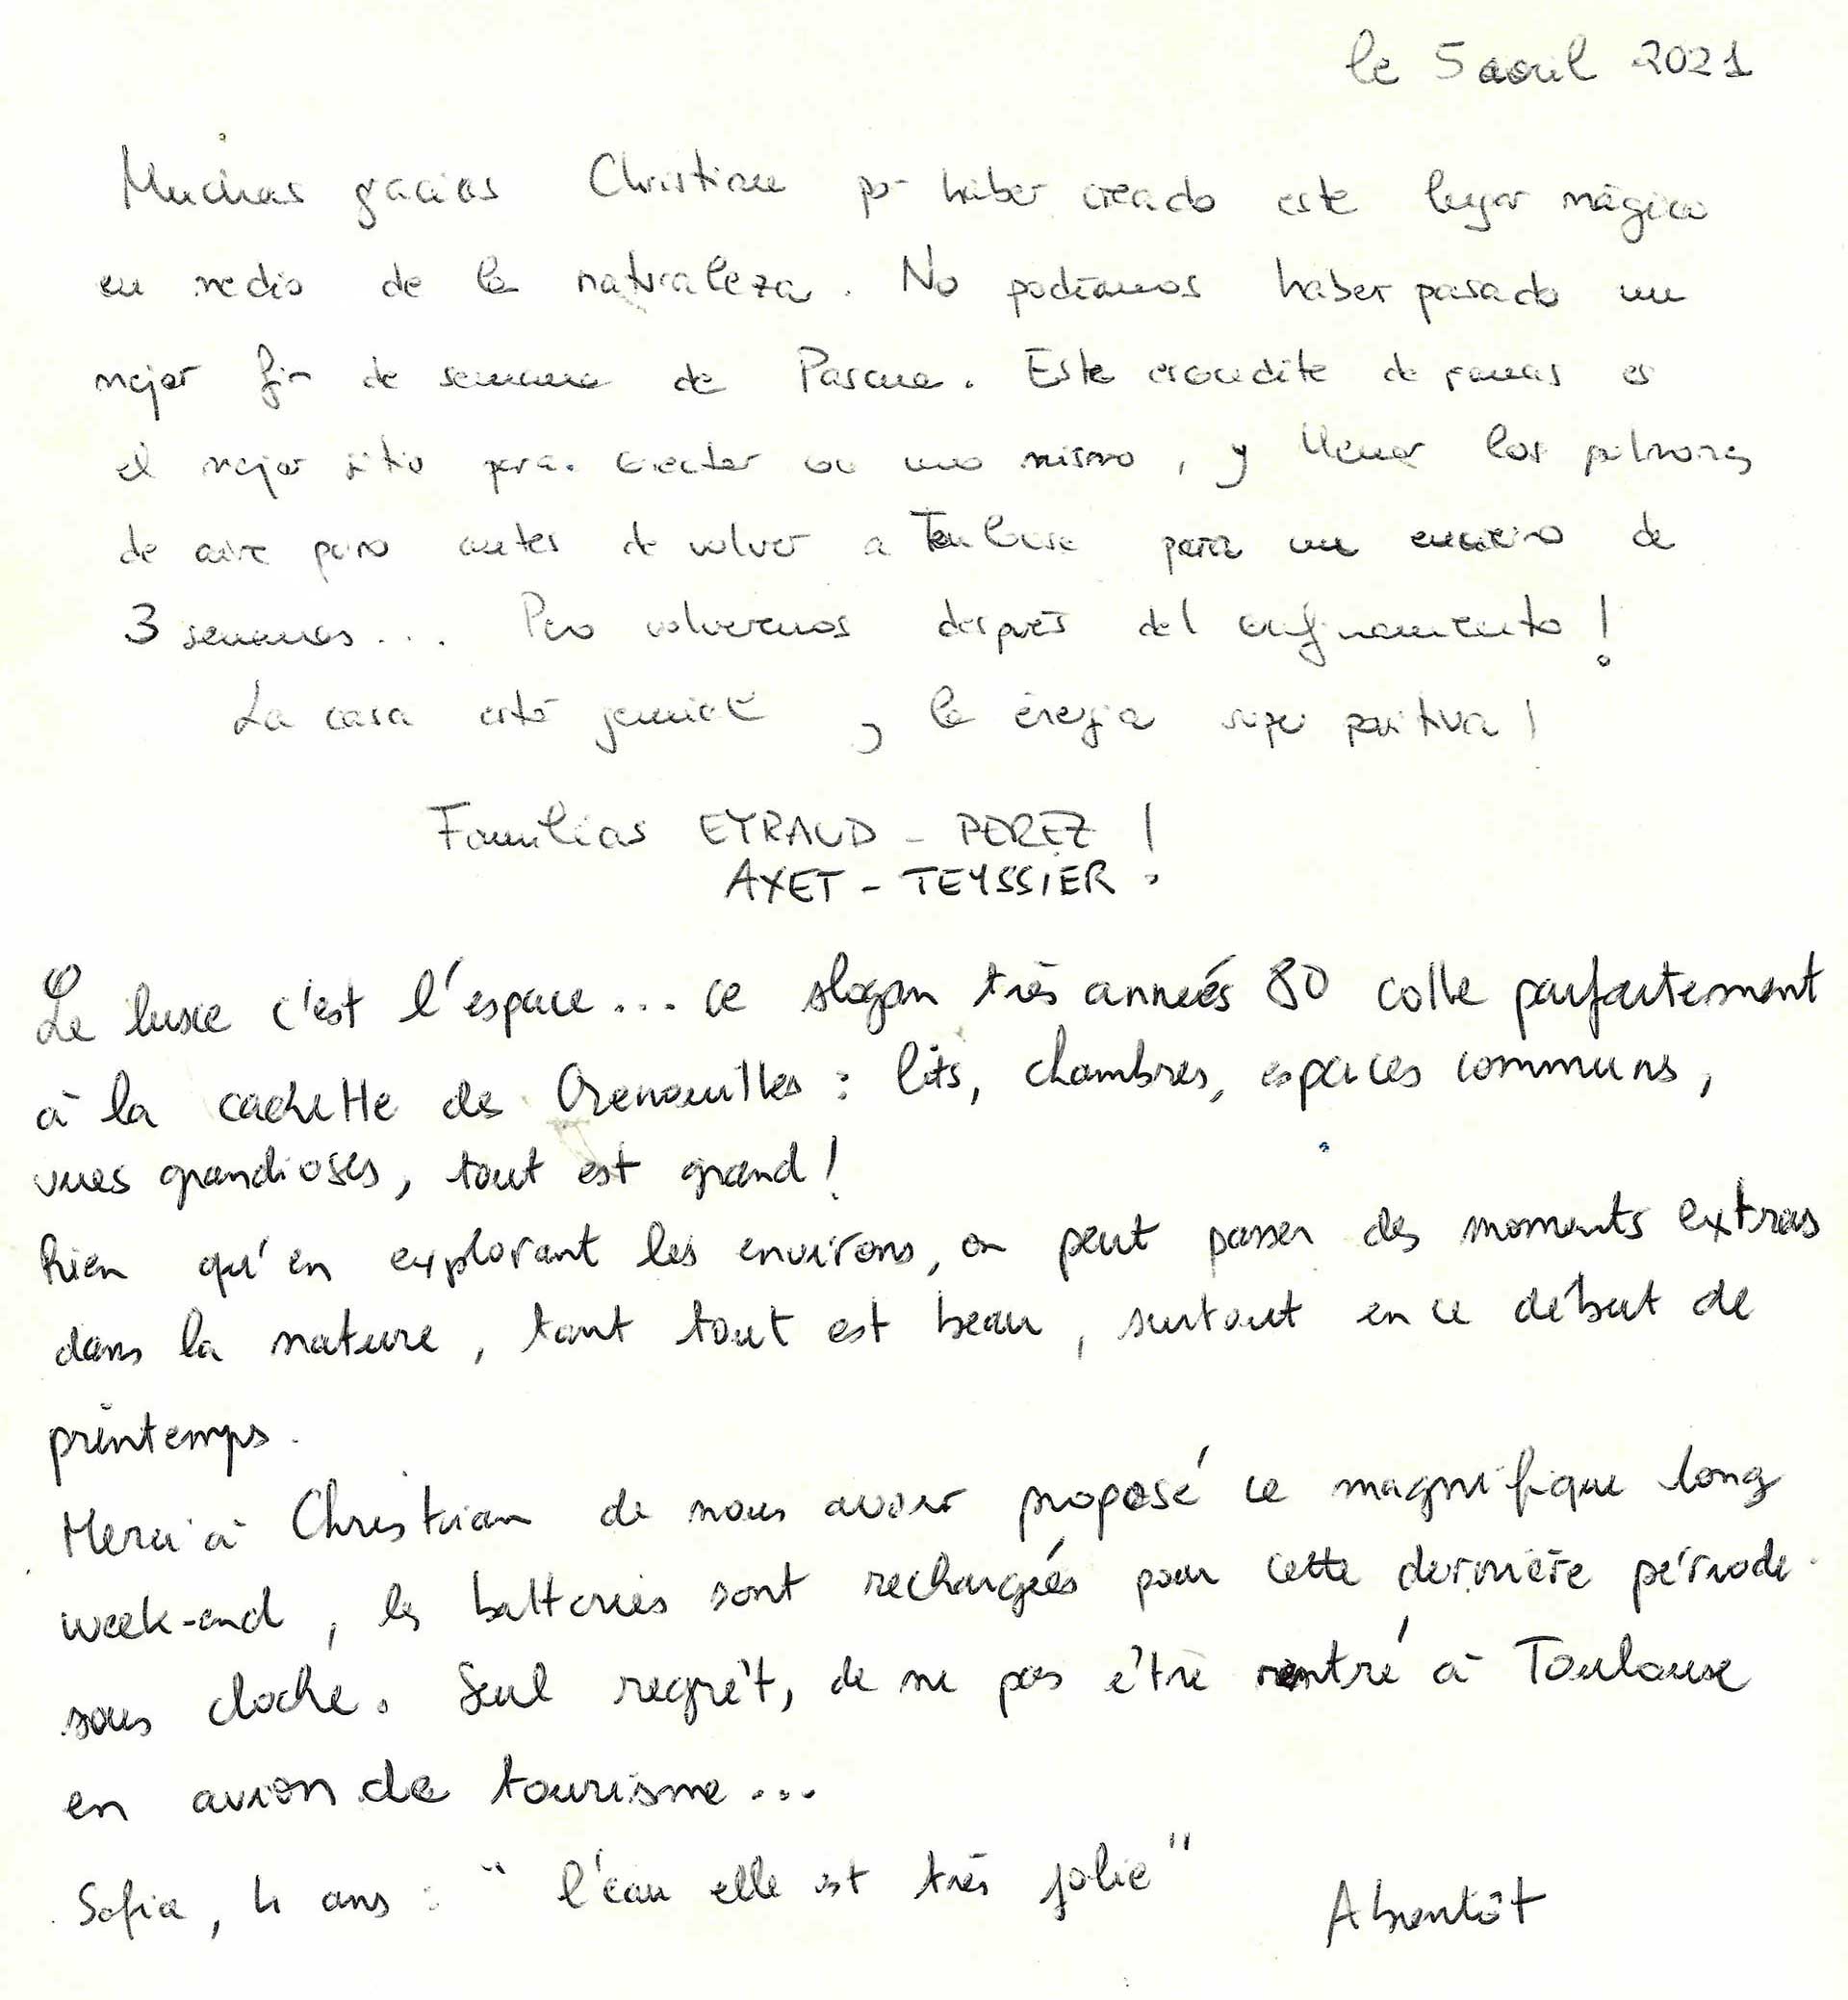 le 5 avril 2021
Muchas gracias Christian por haber creado este lugar mágico
en medio de la naturaleza. No podíamos haber pasado un
mejor fin de semana de Pascua. Este escondite de ranas es
el mejor sitio para conectar con uno mismo, y llenar los pulmones
de aire puro antes de volver a Toulouse para un encierro de
3 semanas... Pero volveremos después del confinamiento!
La casa está genial, la énergia super positiva!
Familias EYRAUD - PEREZ !
AXET - TEYSSIER !
Le luxe c'est l'espace... ce slogan très années 80 colle parfaitement
à la cachette des Grenouilles : lits, chambres, espaces communs,
vues grandioses, tout est grand!
Rien qu'en explorant les environs, on peut passer des moments extras
dans la nature, tant tout est beau, surtout en ce début de
printemps.
Merci à Christian de nous avoir proposé ce magnifique long
week-end, les batteries sont rechargées pour cette dernière période
sous cloche. Seul regrèt, de ne pas être rentré à Toulouse
en avion de tourisme...
Sofia, 4 ans : "l'eau elle est très jolie"
A bientôt